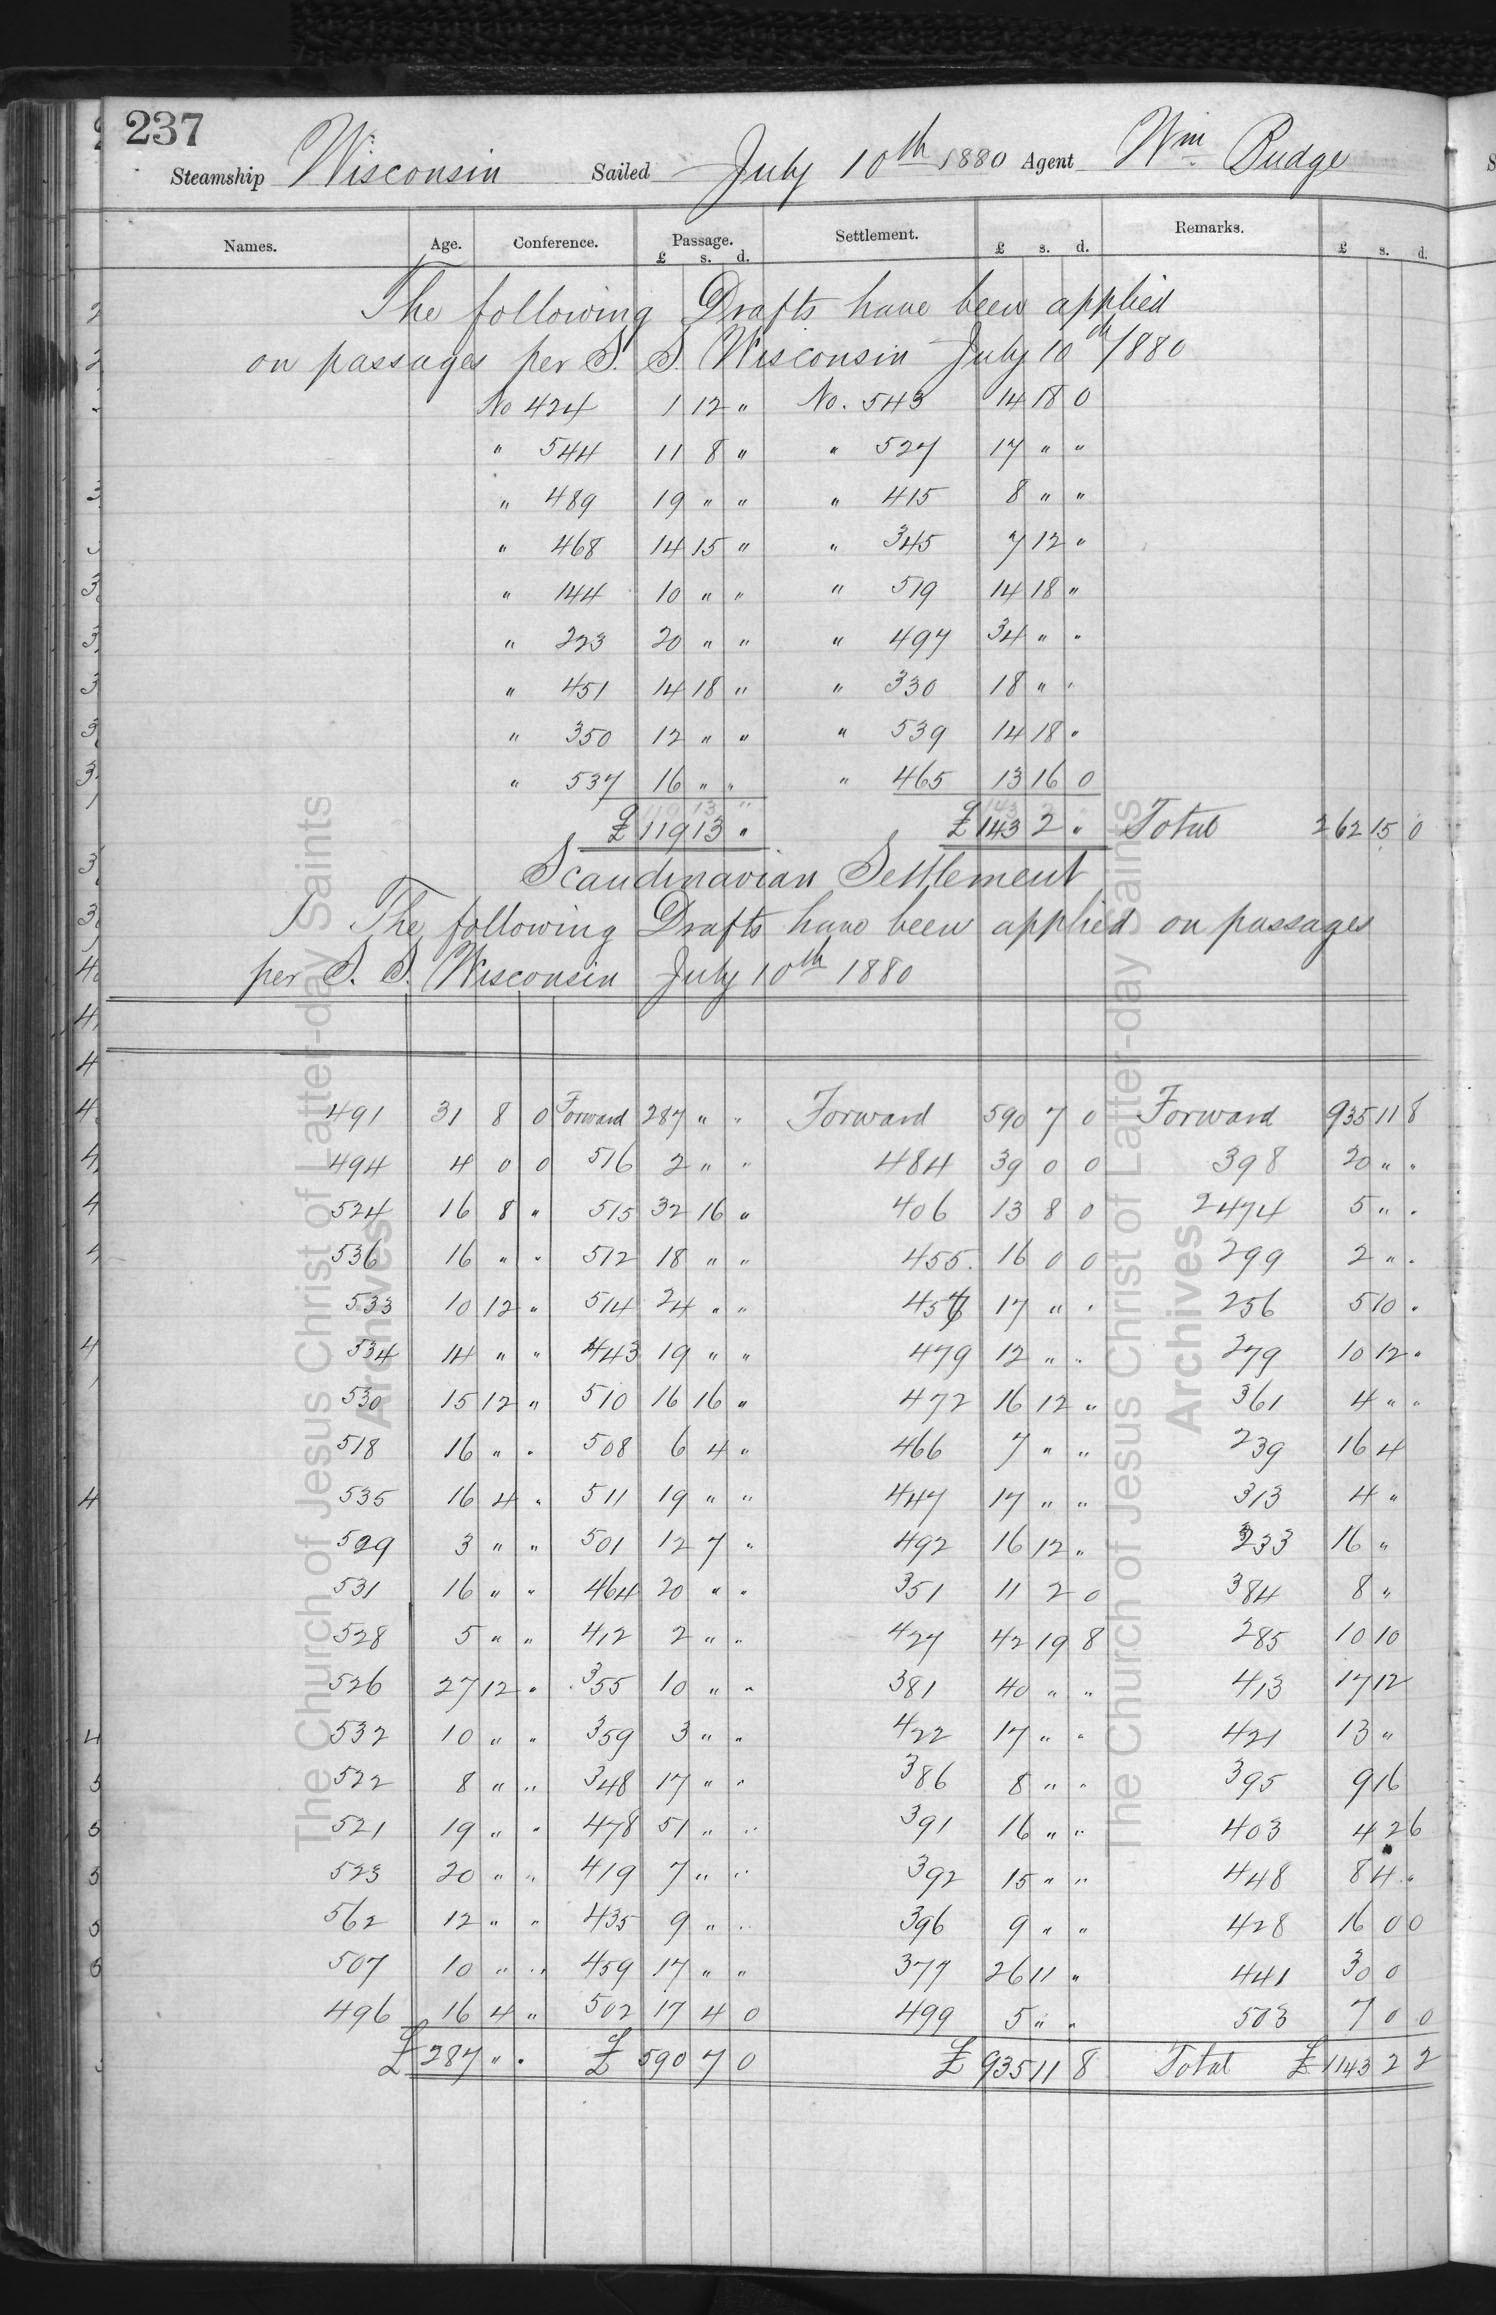 237
Steamship Wisconsin Sailed July 10th 1880 Agent Wm Budge
Names. Age. Conference. Passage. £ s. d. Settlement. £ s. d. Remarks. £ s. d.
The following Drafts have been applied
on passages per S. S. Wisconsin July 10th 1880
No 424 1 12 " No. 543 14 18 0
" 544 11 8 " " 527 17 " "
" 489 19 " " " 415 8 " "
" 468 14 15 " " 345 7 12 "
" 144 10 " " " 519 14 18 "
" 223 20 " " " 497 34 " "
" 451 14 18 " " 330 18 " "
" 350 12 " " " 539 14 18 "
" 537 16 " " " 465 13 16 0
£ 119 13 " £ 143 2 " Total 262 15 0
Scandinavian Settlement
The following Drafts have been applied on passages
per S. S. Wisconsin July 10th 1880
491 31 8 0 Forward 287 " " Forward 590 7 0 Forward 935 11 8
494 4 0 0 516 2 " " 484 39 0 0 398 20 " "
524 16 8 " 515 32 16 " 406 13 8 0 2474 5 " "
536 16 " " 512 18 " " 455 16 0 0 299 2 " "
533 10 12 " 514 24 " " 17 " " 256 5 10 "
534 14 " " 443 19 " " 479 12 " " 279 10 12 "
530 15 12 " 510 16 16 " 472 16 12 " 361 4 " "
518 16 " " 508 6 4 " 466 7 " " 239 16 4
535 16 4 " 511 19 " " 447 17 " " 313 4 "
529 3 " " 501 12 7 " 492 16 12 " 233 16 "
531 16 " " 464 20 " " 351 11 2 0 384 8 "
528 5 " " 412 2 " " 427 42 19 8 285 10 10
526 27 12 " 355 10 " " 381 40 " " 413 17 12
532 10 " " 359 3 " " 422 17 " " 421 13 "
522 8 " " 348 17 " " 386 8 " " 395 9 16
521 19 " " 478 51 " " 391 16 " " 403 4 2 6
523 20 " " 419 7 " " 392 15 " " 448 8 4 "
562 12 " " 435 9 " " 396 9 " " 428 16 0 0
507 10 " " 459 17 " " 377 26 11 " 441 30 0
496 16 4 " 502 17 4 0 499 5 " " 503 7 0 0
£ 287 " " £ 590 7 0 £ 935 11 8 Total £ 1143 2 2
The Church of Jesus Christ of Latter-day Saints
Archives
The Church of Jesus Christ of Latter-day Saints
Archives